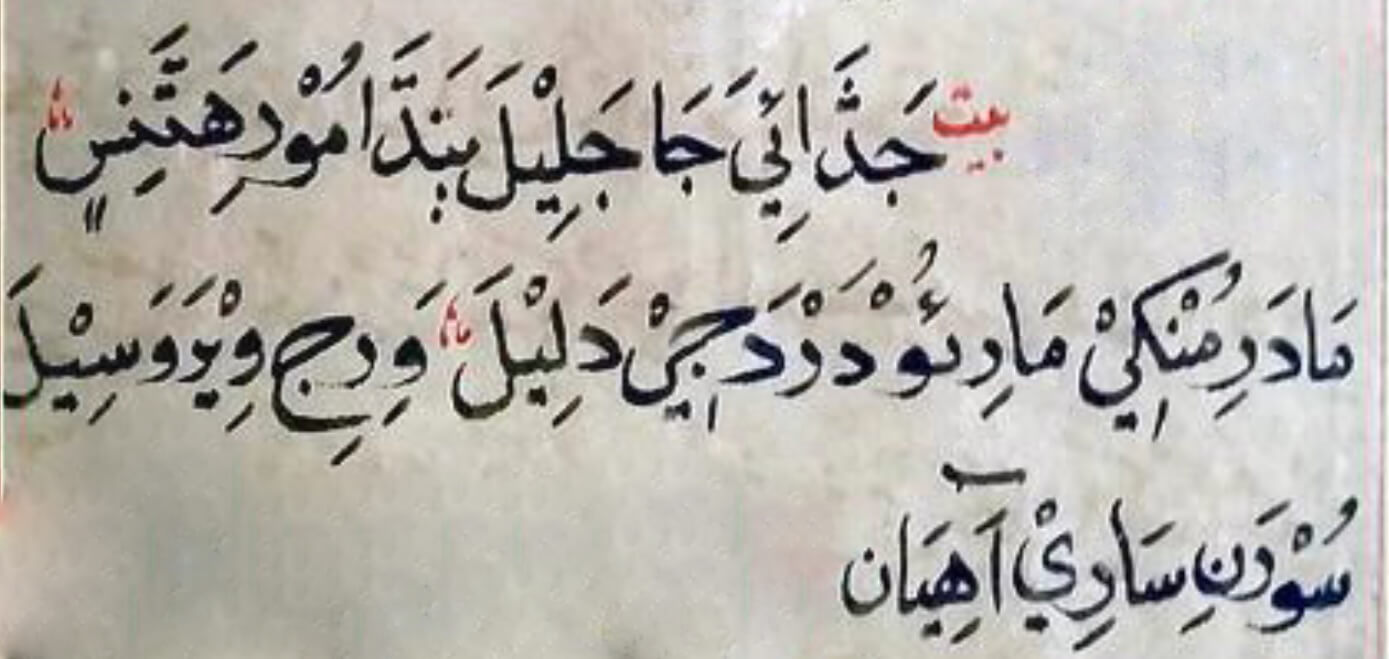 بيت جَدَّائِي جَا جَلِيْلَ بَنَدَّا مُوْرِ هَتَّنِسٍ
مَادَرِ مُنْکِيْ مَارِئُوْ دَرْدَ جِيْ دَلِيْلَ وَرِجِ وِيْرَ وَسِيْلَ
سُوْرَنِ سَارِيْ آهِيَان